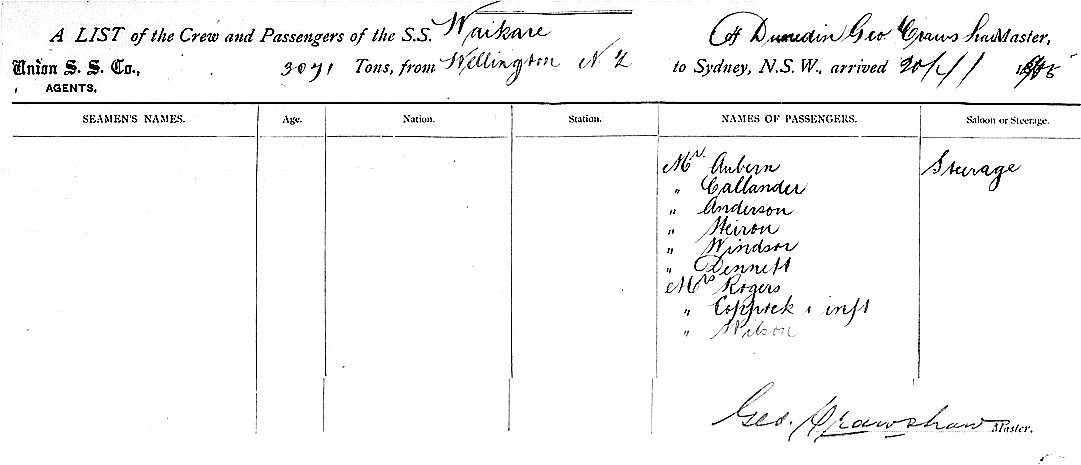 A LIST of the Crew and Passengers of the S.S. Waikare Of Dunedin Geo Crawshaw Master,
Union S. S. Co., 3071 Tons, from Wellington N Z to Sydney, N.S.W., arrived
AGENTS,
SEAMEN'S NAMES. Age. Nation. Station. NAMES OF PASSENGERS. Saloon or Steerage.
Mr. Auburn Steerage
" Callander
" Anderson
"
" Windsor
" Dennett
Mrs Rogers
" Coppick & inft
" Wilson
Geo. Crawshaw Master.